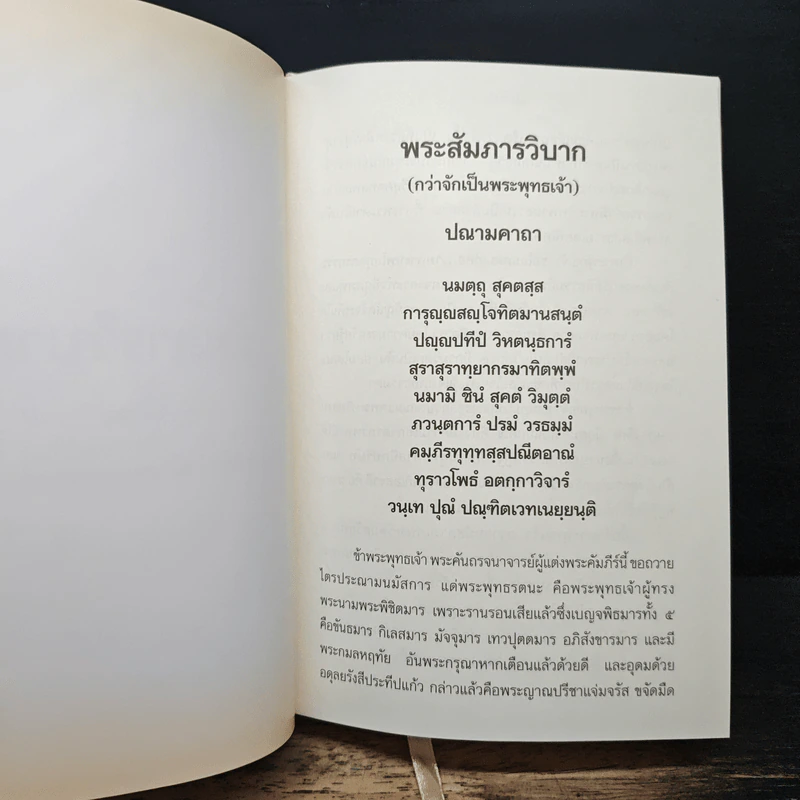 พระสัมภารวิบาก
(กว่าจักเป็นพระพุทธเจ้า)
ปณามคาถา
นมตฺถุ สุคตสฺส
การุญฺญสญฺโจทิตมานสนฺตํ
ปญฺญปทีปํ วิหตนฺธการํ
สุราสุราทฺยากรมาทิตพฺพํ
นมามิ ชินํ สุคตํ วิมุตฺตํ
ภวนฺตการํ ปรมํ วรธมฺมํ
คมฺภีรทุทฺทสฺสปณีตอาณํ
ทุราวโพธํ อตกฺกาวิจารํ
วนฺเท ปุณํ ปณฺฑิตเวทเนยฺยนฺติ
ข้าพระพุทธเจ้า พระคันถรจนาจารย์ผู้แต่งพระคัมภีร์นี้ ขอถวาย
ไตรประณามนมัสการ แด่พระพุทธรตนะ คือพระพุทธเจ้าผู้ทรง
พระนามพระพิชิตมาร เพราะรานรอนเสียแล้วซึ่งเบญจพิธมารทั้ง ๕
คือขันธมาร กิเลสมาร มัจจุมาร เทวปุตตมาร อภิสังขารมาร และมี
พระกมลหฤทัย อันพระกรุณาหากเตือนแล้วด้วยดี และอุดมด้วย
อดุลยรังสีประทีปแก้ว กล่าวแล้วคือพระญาณปรีชาแจ่มจรัส ขจัดมืด